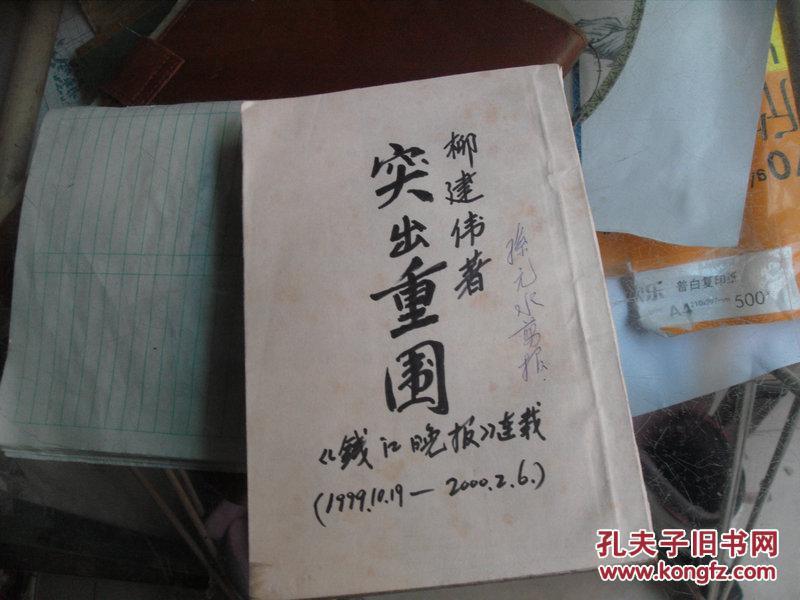 柳建伟著
突出重围
孫元水剪报.
《钱江晚报》连载
(1999.10.19—2000.2.6.)
普白复印纸
A4 210x297mm 500
孔夫子旧书网
www.kongfz.com